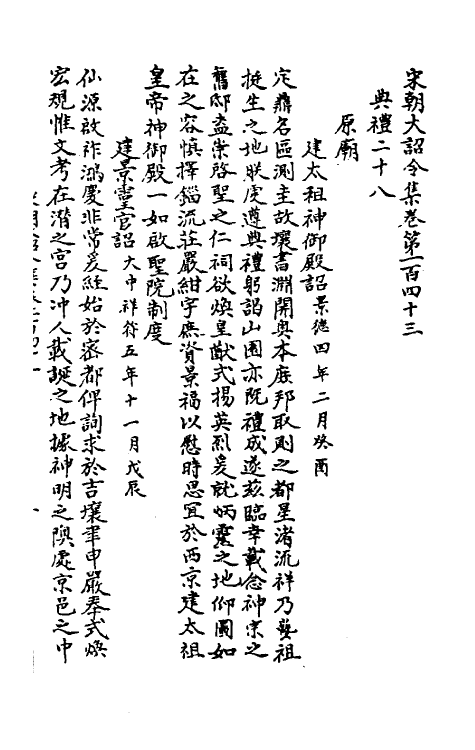 宋朝大詔令集卷第一百四十三
典禮二十八
原廟
建太祖神御殿詔景德四年二月癸酉
定鼎名區測圭故壤書淵開奧本庭邦取則之都星渚流祥乃藝祖
挺生之地朕虔遵典禮躬謁山園亦既禮成遂茲臨幸載念神宗之
舊邸盍崇啓聖之仁祠欲煥皇猷式揚英烈爰就炳靈之地仰圖如
在之容慎擇緇流莊嚴紺宇庶資景福以慰時思宜於西京建太祖
皇帝神御殿一如啟聖院制度
建景靈宮詔大中祥符五年十一月戊辰
仙源啟祚鴻慶非常爰經始於密都俾詢求於吉壤聿申嚴奉式煥
宏規惟文考在潛之宮乃沖人載誕之地據神明之隩處京邑之中